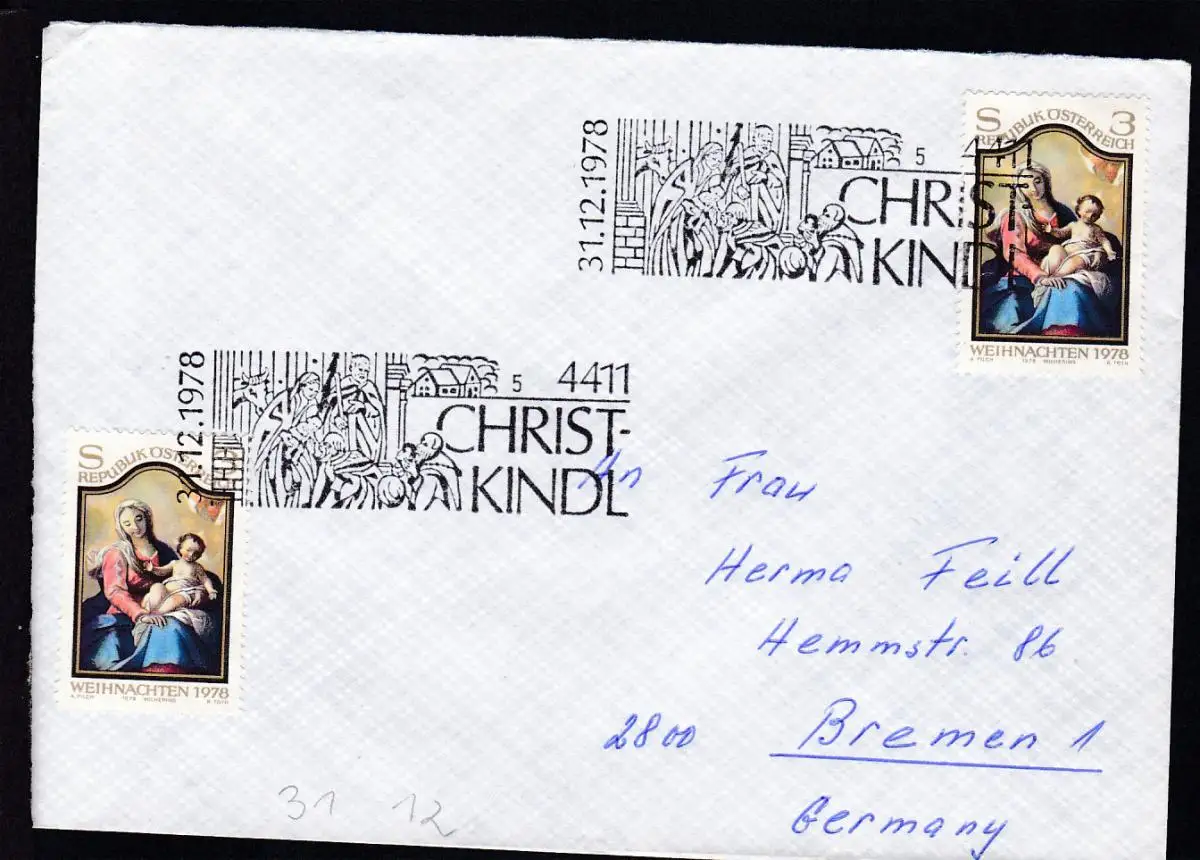 31.12.1978
5 4411
CHRIST-
KINDL
S 3
REPUBLIK ÖSTERREICH
WEIHNACHTEN 1978
A. PILCH 1978 WILHERING A. TOTH
31.12.1978
5 4411
CHRIST-
KINDL
S
REPUBLIK ÖSTERREICH
WEIHNACHTEN 1978
A. PILCH 1978 WILHERING A. TOTH
An Frau
Herma Feill
Hemmstr. 86
2800 Bremen 1
Germany
31 12